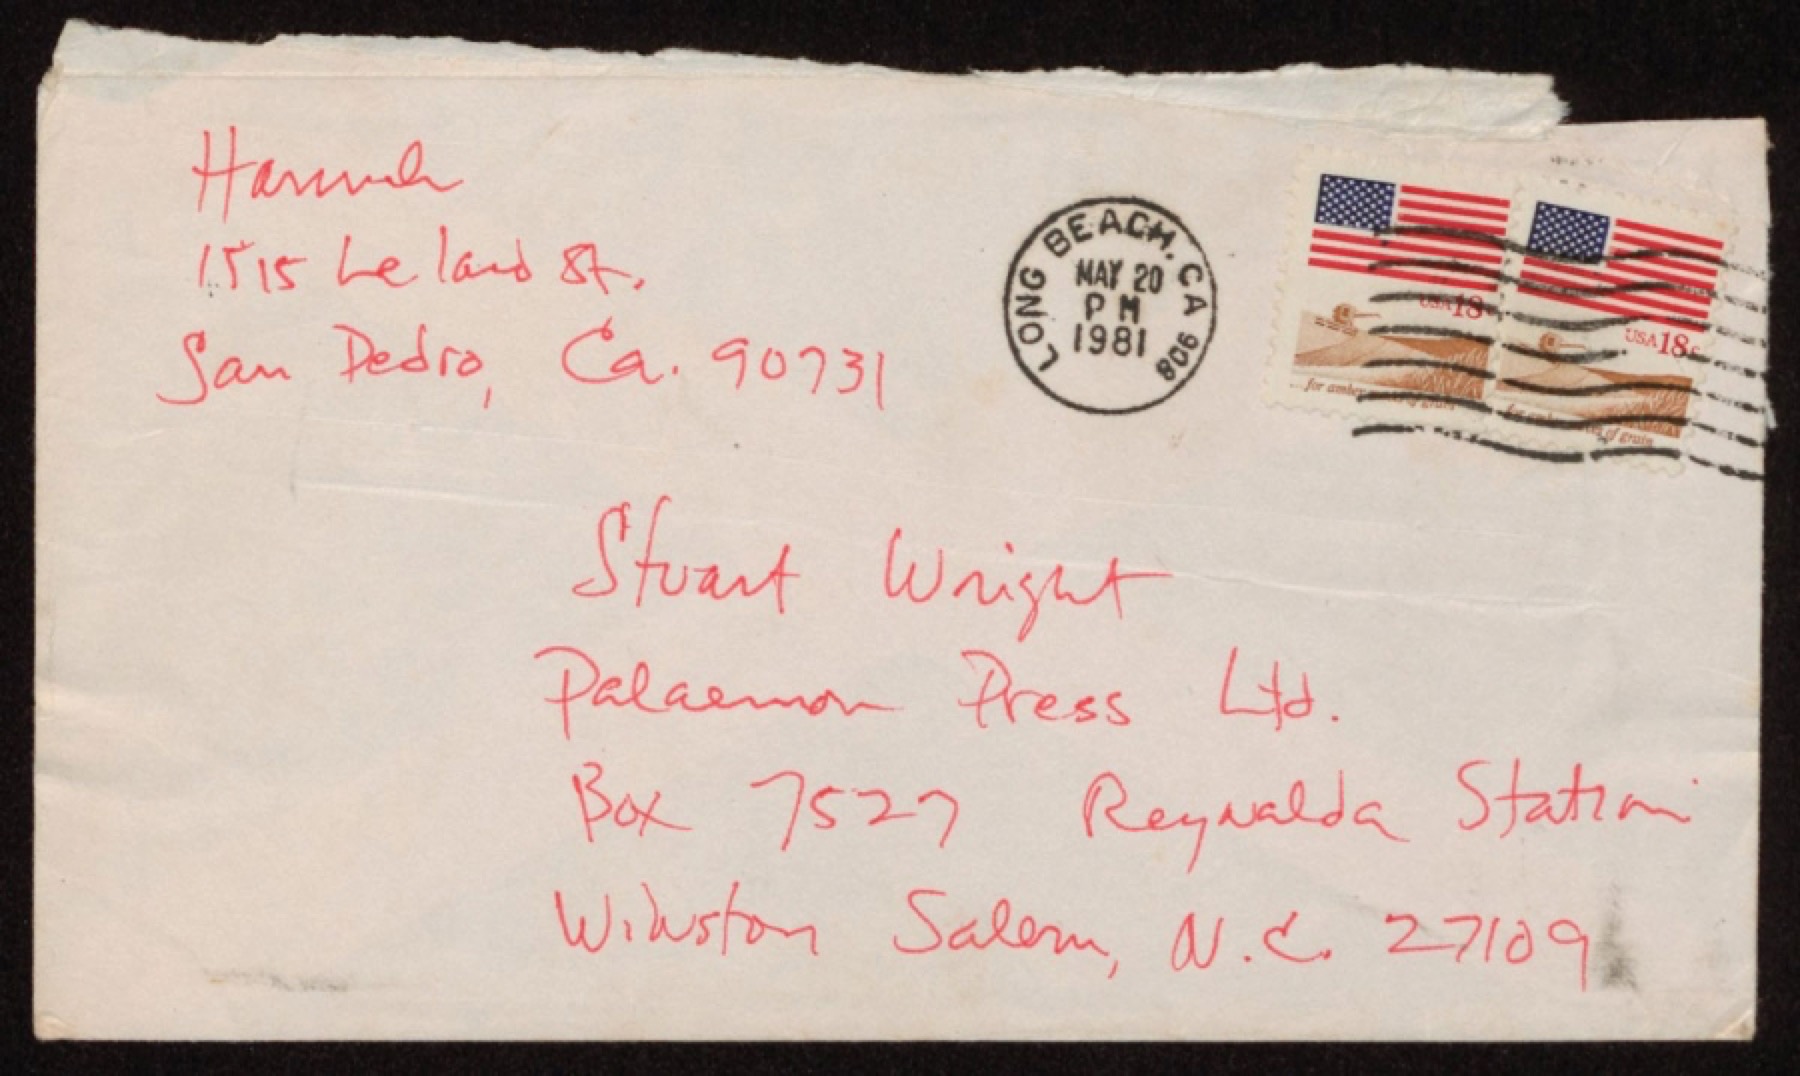 Hannah
1515 Leland St.
San Pedro, Ca. 90731
LONG BEACH, CA 908
MAY 20
PM
1981
USA 18c
...for amber waves of grain
USA 18c
...for amber waves of grain
Stuart Wright
Palaemon Press Ltd.
Box 7527 Reynalda Station
Winston Salem, N.C. 27109